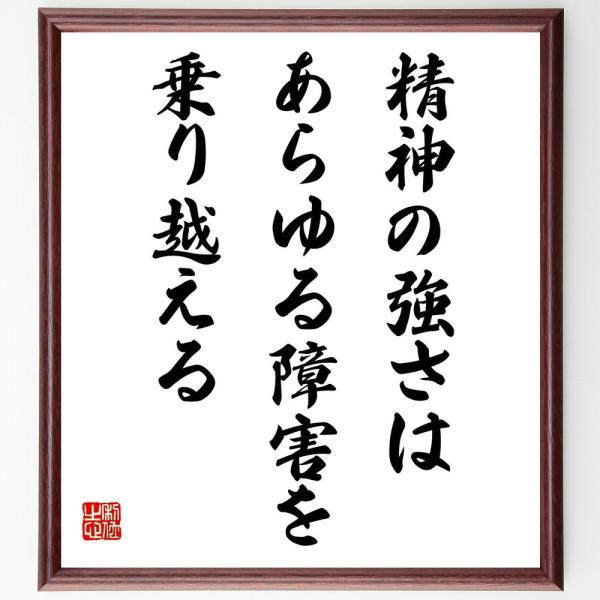 精神の強さは
あらゆる障害を
乗り越える